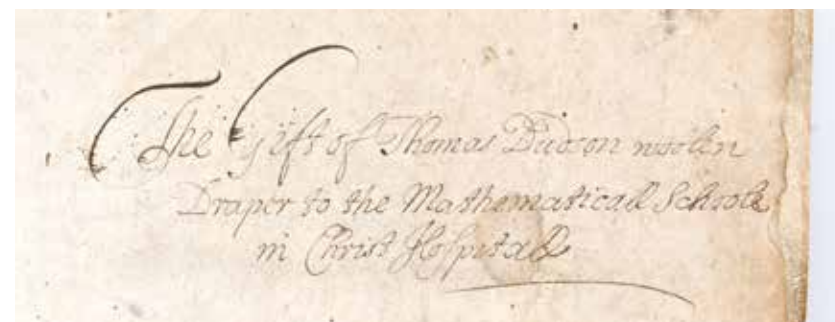 The gift of Thomas Dudson woolen
Draper to the Mathematicall Schoole
in Christ Hospitall